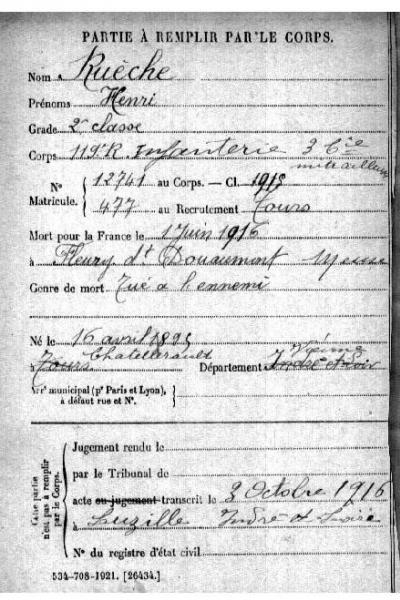 PARTIE À REMPLIR PAR LE CORPS.
Nom Ruèche
Prénoms Henri
Grade 2e classe
Corps 119e R. Infanterie 3 Cie
mitrailleuses
No Matricule. { 12741 au Corps. — Cl. 1915
{ 477 au Recrutement Tours
Mort pour la France le 1 Juin 1916
à Fleury dt Douaumont Meuse
Genre de mort Tué à l'ennemi
Né le 16 avril 1895
Chatellerault Vienne
Tours Département Indre et Loir
Arrt municipal (pr Paris et Lyon),
à défaut rue et No.
Cette partie
n'est pas à remplir
par le Corps.
Jugement rendu le
par le Tribunal de
acte ou jugement transcrit le 2 Octobre 1916
à Luzillé Indre et Loire
No du registre d'état civil
534-708-1921. [26434.]